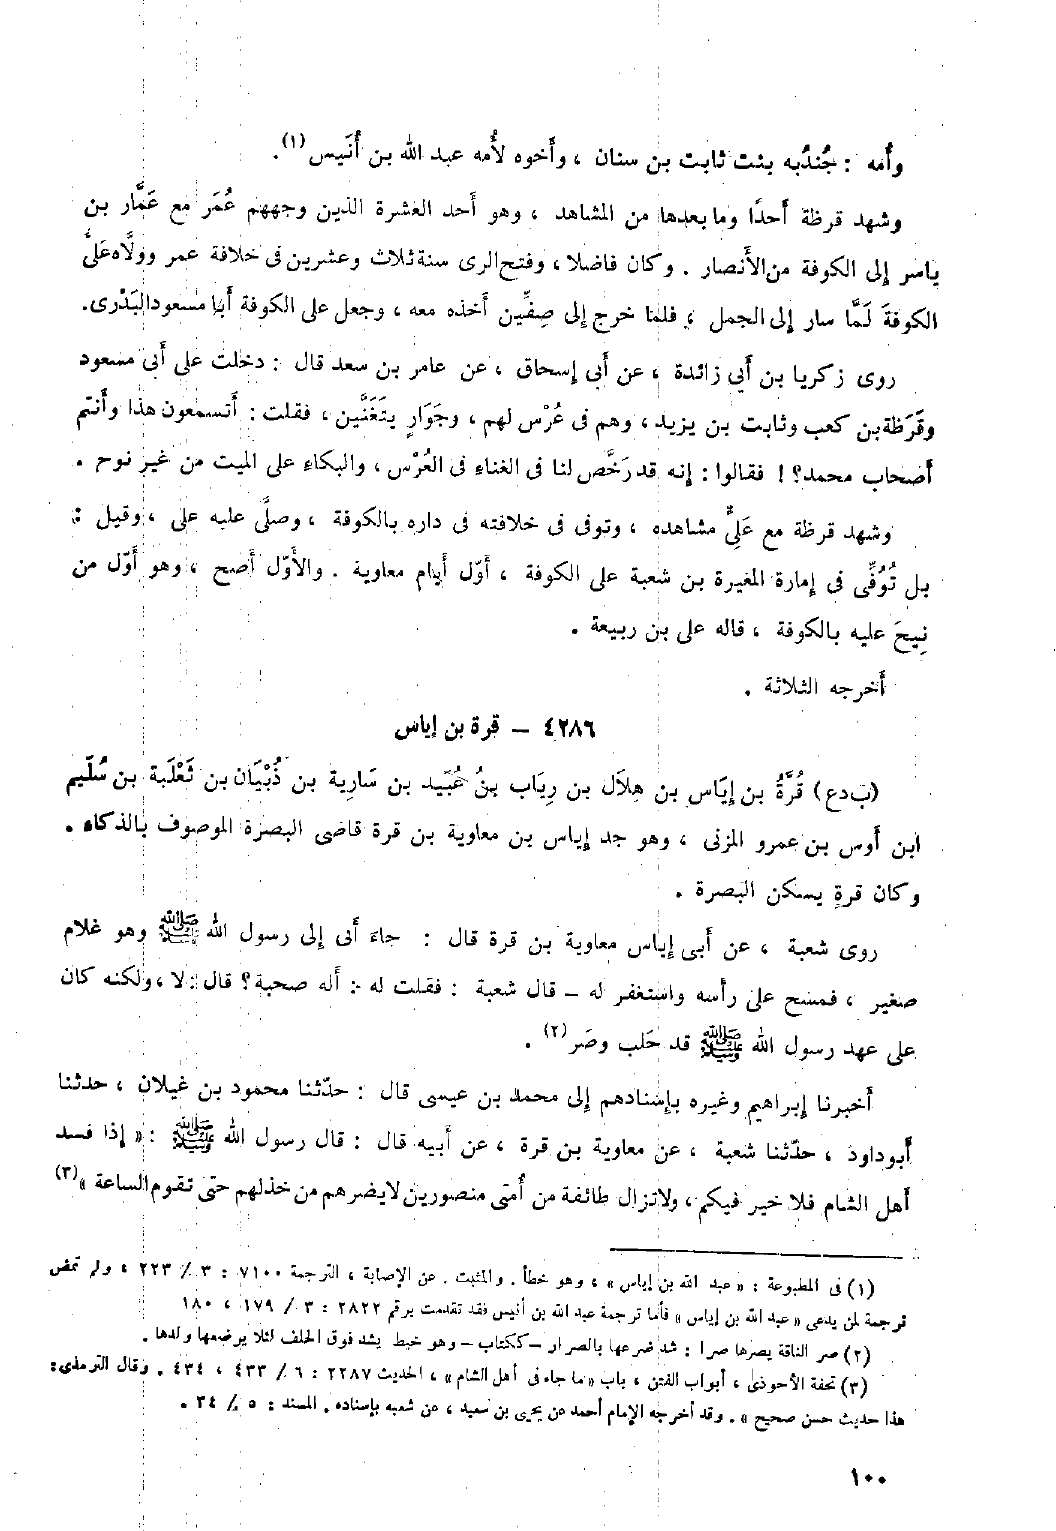 وأُمه : جُندُبه بنت ثابت بن سنان ، وأَخوه لأُمه عبد الله بن أُنَيس(١).
وشهد قرظة أَحدًا وما بعدها من المشاهد ، وهو أَحد العشرة الذين وجههم عُمَر مع عَمَّار بن
ياسر إلى الكوفة من الأَنصار . وكان فاضلا ، وفتح الرى سنة ثلاث وعشرين فى خلافة عمر وولَّاه عَلىٌّ
الكوفةَ لَمَّا سار إلى الجمل ، فلما خرج إلى صِفِّين أَخذه معه ، وجعل على الكوفة أَبا مسعود البَدْرى.
روى زكريا بن أَبى زائدة ، عن أَبى إسحاق ، عن عامر بن سعد قال : دخلت على أَبى مسعود
وقَرَظة بن كعب وثابت بن يزيد ، وهم فى عُرْس لهم ، وجَوَارٍ يتَغَنَّين ، فقلت : أَتسمعون هذا وأَنتم
أَصحاب محمد؟! فقالوا : إنه قد رَخَّص لنا فى الغناء فى العُرْس ، والبكاء على الميت من غير نوح .
وشهد قرظة مع عَلِىٍّ مشاهده ، وتوفى فى خلافته فى داره بالكوفة ، وصلَّى عليه على ، وقيل :
بل تُوُفِّى فى إمارة المغيرة بن شعبة على الكوفة ، أَوّل أَيام معاوية . والأَوّل أَصح ، وهو أَوّل من
نِيحَ عليه بالكوفة ، قاله على بن ربيعة .
أَخرجه الثلاثة .
٤٢٨٦ – قرة بن إياس
(ب د ع) قُرَّةُ بن إيَاس بن هِلَال بن رِيَاب بنُ عُبَيد بن سَارِية بن ذُبْيَان بن ثَعْلَبة بن سُلَيم
ابن أَوس بن عمرو المزنى ، وهو جد إياس بن معاوية بن قرة قاضى البصرة الموصوف بالذكاء .
وكان قرة يسكن البصرة .
روى شعبة ، عن أَبى إياس معاوية بن قرة قال : جاءَ أَبى إلى رسول الله ﷺ وهو غلام
صغير ، فمسح على رأسه واستغفر له – قال شعبة : فقلت له : أَله صحبة؟ قال : لا ، ولكنه كان
على عهد رسول الله ﷺ قد حَلب وصَر(٢) .
أَخبرنا إبراهيم وغيره بإسنادهم إلى محمد بن عيسى قال : حدّثنا محمود بن غيلان ، حدثنا
أَبو داود ، حدّثنا شعبة ، عن معاوية بن قرة ، عن أَبيه قال : قال رسول الله ﷺ : « إذا فسد
أَهل الشام فلا خير فيكم ، ولا تزال طائفة من أُمتى منصورين لا يضرهم من خذلهم حتى تقوم الساعة »(٣)
(١) فى المطبوعة : « عبد الله بن إياس » ، وهو خطأ . والمثبت عن الإصابة ، الترجمة ٧١٠٠ : ٣ / ٢٢٣ ، ولم تمض
ترجمة لمن يدعى « عبد الله بن إياس » فأما ترجمة عبد الله بن أنيس فقد تقدمت برقم ٢٨٢٢ : ٣ / ١٧٩ ، ١٨٠
(٢) صر الناقة يصرها صرا : شد ضرعها بالصرار – ككتاب – وهو خيط يشد فوق الخلف لئلا يرضعها ولدها .
(٣) تحفة الأحوذى ، أبواب الفتن ، باب « ما جاء فى أهل الشام » ، الحديث ٢٢٨٧ : ٦ / ٤٣٣ ، ٤٣٤ . وقال الترمذى :
هذا حديث حسن صحيح » . وقد أخرجه الإمام أحمد عن يحيى بن سعيد ، عن شعبه بإسناده . المسند : ٥ / ٣٤ .
١٠٠